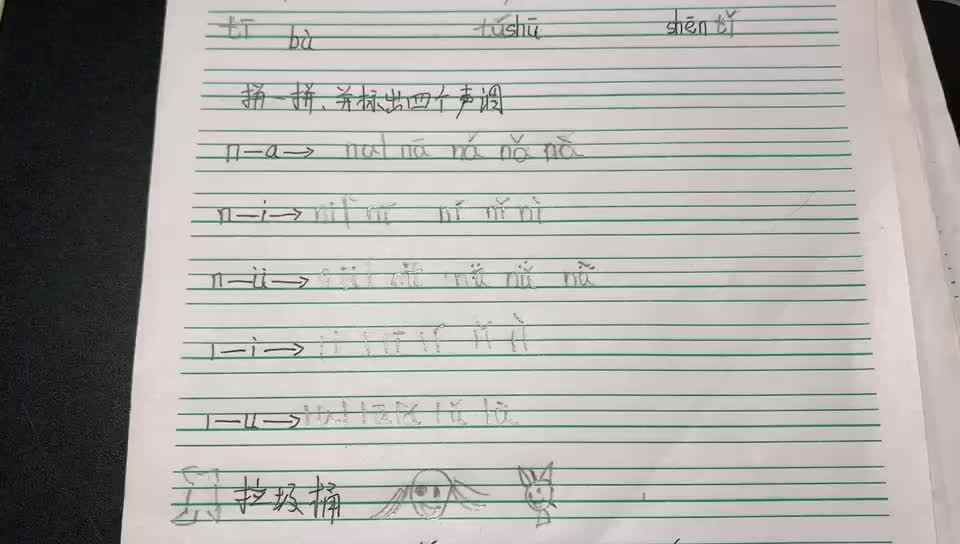 tī bà túshū shēn tǐ
拼一拼、并标出四个声调
n—a→ na nā ná nǎ nà
n—i→ ni nī ní nǐ nì
n—ü→ nǘ nǚ nǜ
l—i→ lī lí lǐ lì
l—u→ lǔ lù
垃圾桶